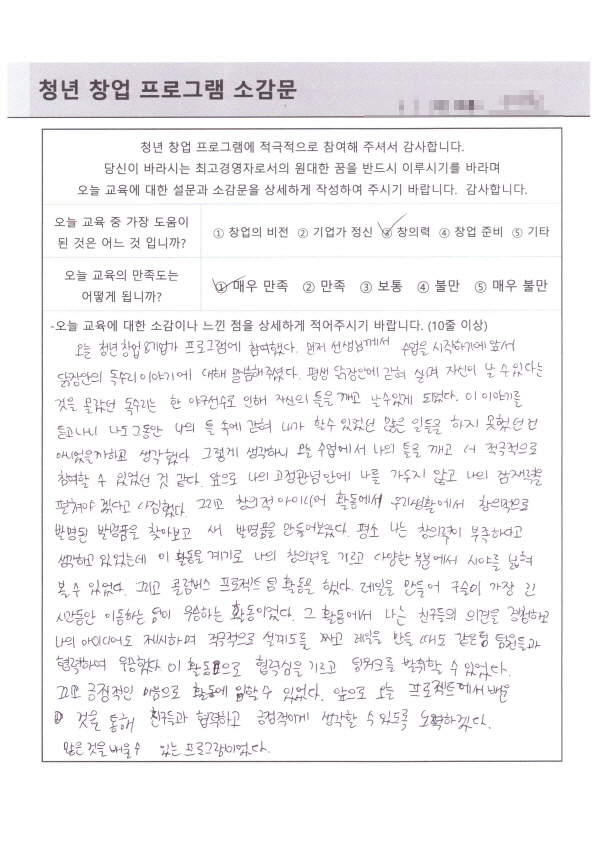 청년 창업 프로그램 소감문
청년 창업 프로그램에 적극적으로 참여해 주셔서 감사합니다.
당신이 바라시는 최고경영자로서의 원대한 꿈을 반드시 이루시기를 바라며
오늘 교육에 대한 설문과 소감문을 상세하게 작성하여 주시기 바랍니다. 감사합니다.
오늘 교육 중 가장 도움이
된 것은 어느 것 입니까?
① 창업의 비전 ② 기업가 정신 ③ 창의력 ④ 창업 준비 ⑤ 기타
오늘 교육의 만족도는
어떻게 됩니까?
① 매우 만족 ② 만족 ③ 보통 ④ 불만 ⑤ 매우 불만
-오늘 교육에 대한 소감이나 느낀 점을 상세하게 적어주시기 바랍니다. (10줄 이상)
오늘 청년창업&기업가 프로그램에 참여했다. 먼저 선생님께서 수업을 시작하기에 앞서
닭장안의 독수리 이야기에 대해 말씀해주셨다. 평생 닭장안에 갇혀 살며 자신이 날 수 있다는
것을 몰랐던 독수리는 한 야구선수로 인해 자신의 틀을 깨고 날 수있게 되었다. 이 이야기를
듣고나니 나도 그동안 나의 틀 속에 갇혀 내가 할수 있었던 많은 일들을 하지 못했던건
아니었을까하고 생각했다. 그렇게 생각하니 오늘 수업에서 나의 틀을 깨고 더 적극적으로
참여할 수 있었던 것 같다. 앞으로 나의 고정관념안에 나를 가두지 않고 나의 잠재력을
펼쳐야 겠다고 다짐했다. 그리고 창의적 아이디어 활동에서 우리생활에서 창의적으로
발명된 발명품을 찾아보고 새 발명품을 만들어보았다. 평소 나는 창의력이 부족하다고
생각하고 있었는데 이 활동을 계기로 나의 창의력을 기르고 다양한 부분에서 시야를 넓혀
볼 수 있었다. 그리고 콜럼버스 프로젝트 팀 활동을 했다. 레일을 만들어 구슬이 가장 긴
시간동안 이동하는 팀이 우승하는 활동이었다. 그 활동에서 나는 친구들의 의견을 경청하고
나의 아이디어도 제시하며 적극적으로 설계도를 짜고 레일을 만들 때도 같은팀 팀원들과
협력하여 우승했다. 이 활동으로 협력심을 기르고 팀워크를 발휘할 수 있었다.
그리고 긍정적인 마음으로 활동에 임할 수 있었다. 앞으로 오늘 프로젝트에서 배운
것을 통해 친구들과 협력하고 긍정적이게 생각할 수 있도록 노력하겠다.
많은 것을 배울수 있는 프로그램이었다.